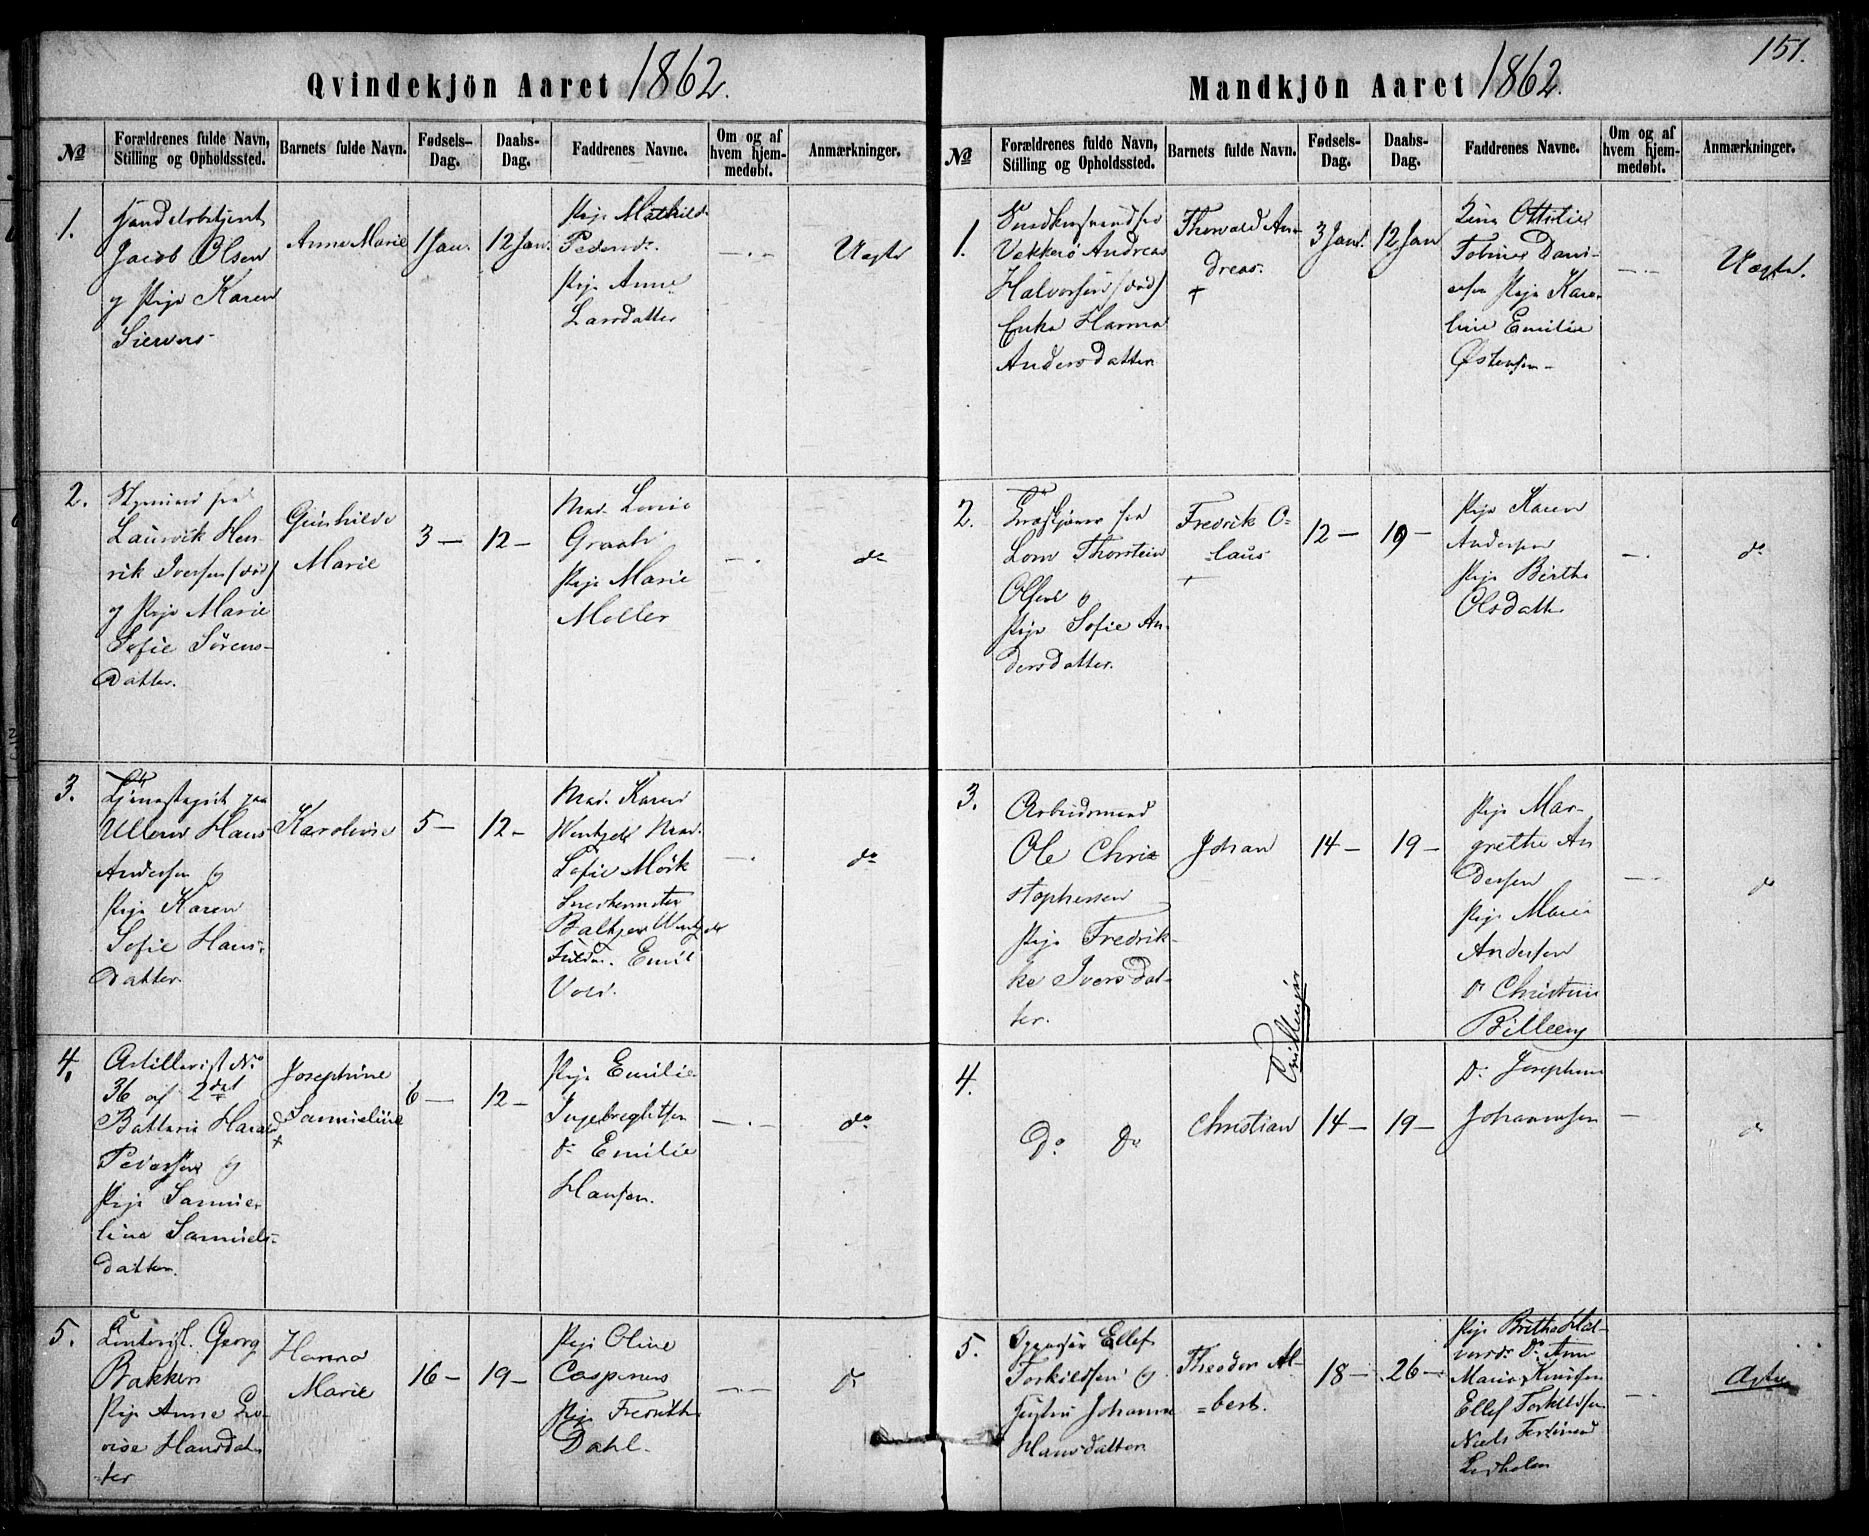 151.
Qvindekjön Aaret 1862.
№
Forældrenes fulde Navn, Stilling og Opholdssted.
Barnets fulde Navn.
Fødsels-Dag.
Daabs-Dag.
Faddrenes Navne.
Om og af hvem hjem-medøbt.
Anmærkninger.
1.
Handelsbetjent
Jacob Olsen
og Pige Karen
Sievers
Anne Marie
1 Jan.
12 Jan.
Pige Mathilde
Pedersdr.
Pige Anne
Larsdatter
—.—
Uægte
2.
Styrmand fra
Laurvik Hen-
rik Iversen (død)
og Pige Marie
Sofie Sörens-
datter.
Gunhilde
Marie
3 —
12 —
Mad. Lovise
Pige Marie
Møller
—.
do
3.
Ullern Hans
Andersen og
Pige Karen
Sofie Hans-
datter.
Karoline
5 —
12 —
Mad. Karen
Wentzel Mad.
Sofie Mörk
Snedkermester
Emil
Vold.
—.
do
4.
Artillerist No
36 af 2det
Batterie Harald
Pedersen og
Pige Samue-
line Samuels-
datter.
Josephine
Samueline
+
6 —
12 —
Pige Emilie
Ingebregtsen
Do Emilie
Hansen.
—.—
do
5.
Georg
Bakken
Pige Anne Lo-
vise Hansdat-
ter
Hanna
Marie
16 —
19 —
Pige Oline
Caspersen
Pige Fredrikke
Dahl.
—.—
do
Mandkjön Aaret 1862.
№
Forældrenes fulde Navn, Stilling og Opholdssted.
Barnets fulde Navn.
Fødsels-Dag.
Daabs-Dag.
Faddrenes Navne.
Om og af hvem hjem-medøbt.
Anmærkninger.
1.
Snedkersvend fra
Vækkerø Andreas
Halvorsen (død)
Enke Hanna
Andersdatter
Thorvald An-
dreas.
+
3 Jan.
12 Jan
Ottilie
Pige Karo-
line Emilie
Østensen
—.—
Uægte.
2.
fra
Lom Thorstein
Olsen og
Pige Sofie An-
dersdatter.
Fredrik O-
laus
+
12 —
19 —
Pige Karen
Andersen
Pige Berthe
Olsdatter
—.
do
3.
Arbeidsmand
Ole Chri-
stophersen
Pige Fredrik-
ke Iversdat-
ter.
Johan
14 —
19 —
Pige Mar-
grethe An
dersen
Pige Marie
Andersen
Do Christine
Billeng
—
do
Tvillinger
4.
Do Do
Christian
14 —
19 —
Do Josephine
Johannesen
—
do
5.
Ellef
Torkildsen og
Hustru Johanne
Hansdatter
Theodor Al-
bert.
18 —
26 —
Pige Berthe Hal-
vorsdr Do Anne
Marie Knudsen
Ellef Torkildsen
Niels Ferdinand
—.
Ægte